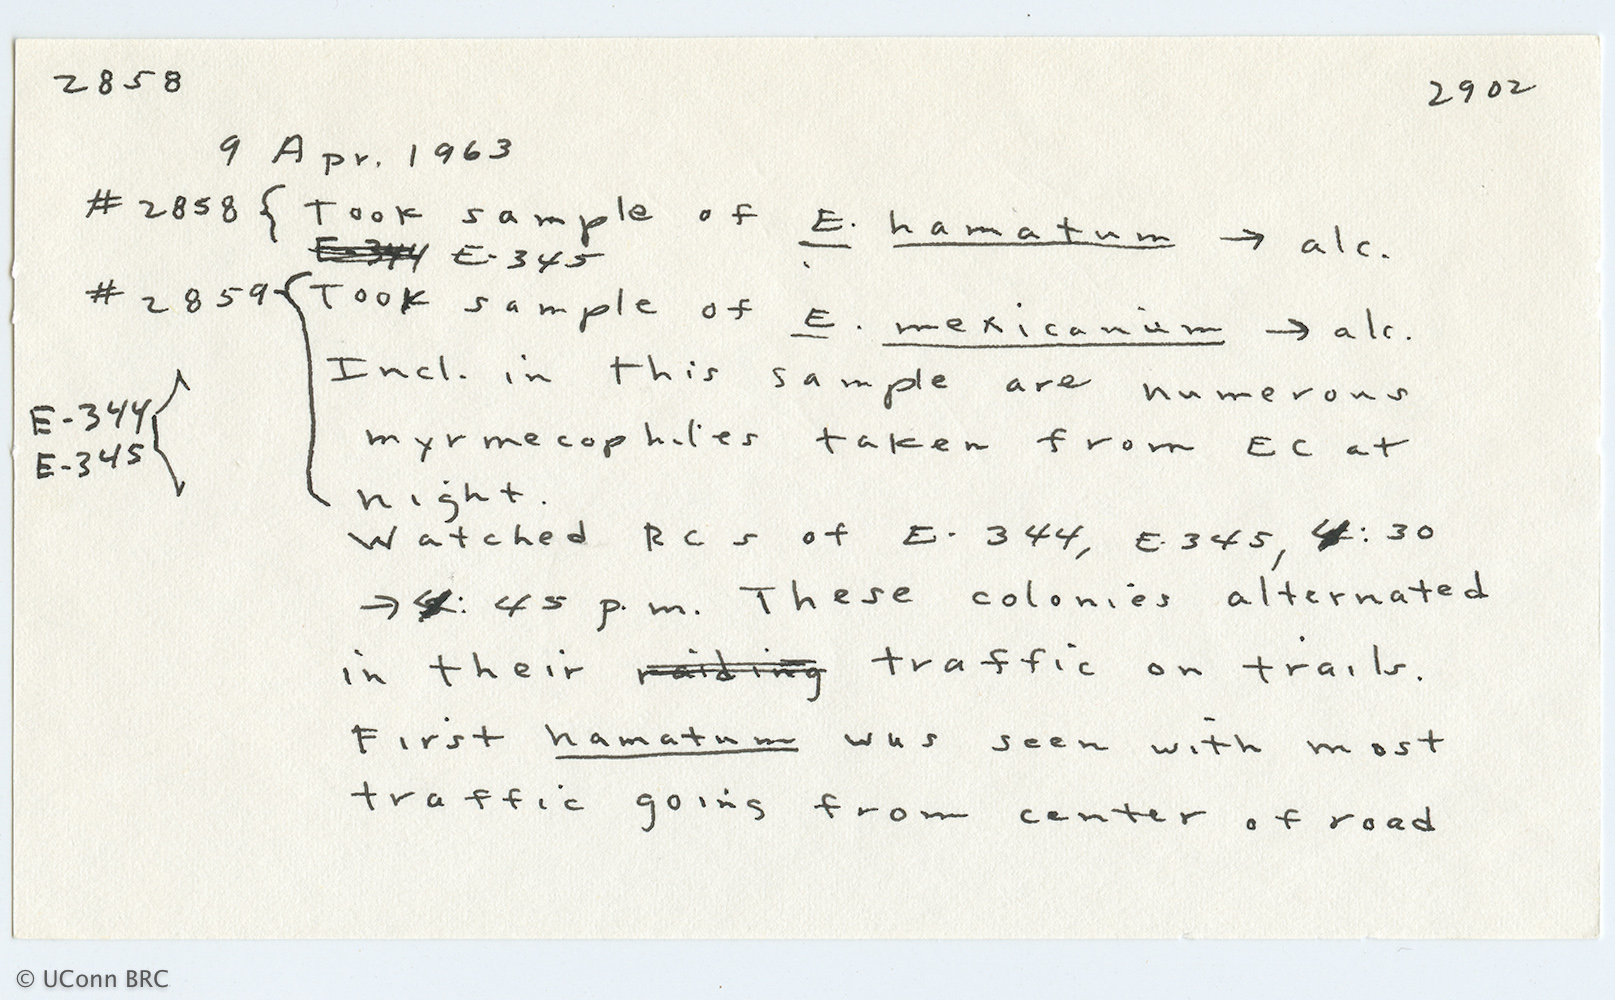 2858 2902
9 Apr. 1963
#2858 { Took sample of E. hamatum → alc.
E-344 E-345
#2859 { Took sample of E. mexicanum → alc.
Incl. in this sample are numerous
E-344
myrmecophiles taken from EC at
E-345
night.
Watched RCs of E-344, E-345, 4:30
→ 4:45 p.m. These colonies alternated
in their raiding traffic on trails.
First hamatum was seen with most
traffic going from center of road
© UConn BRC